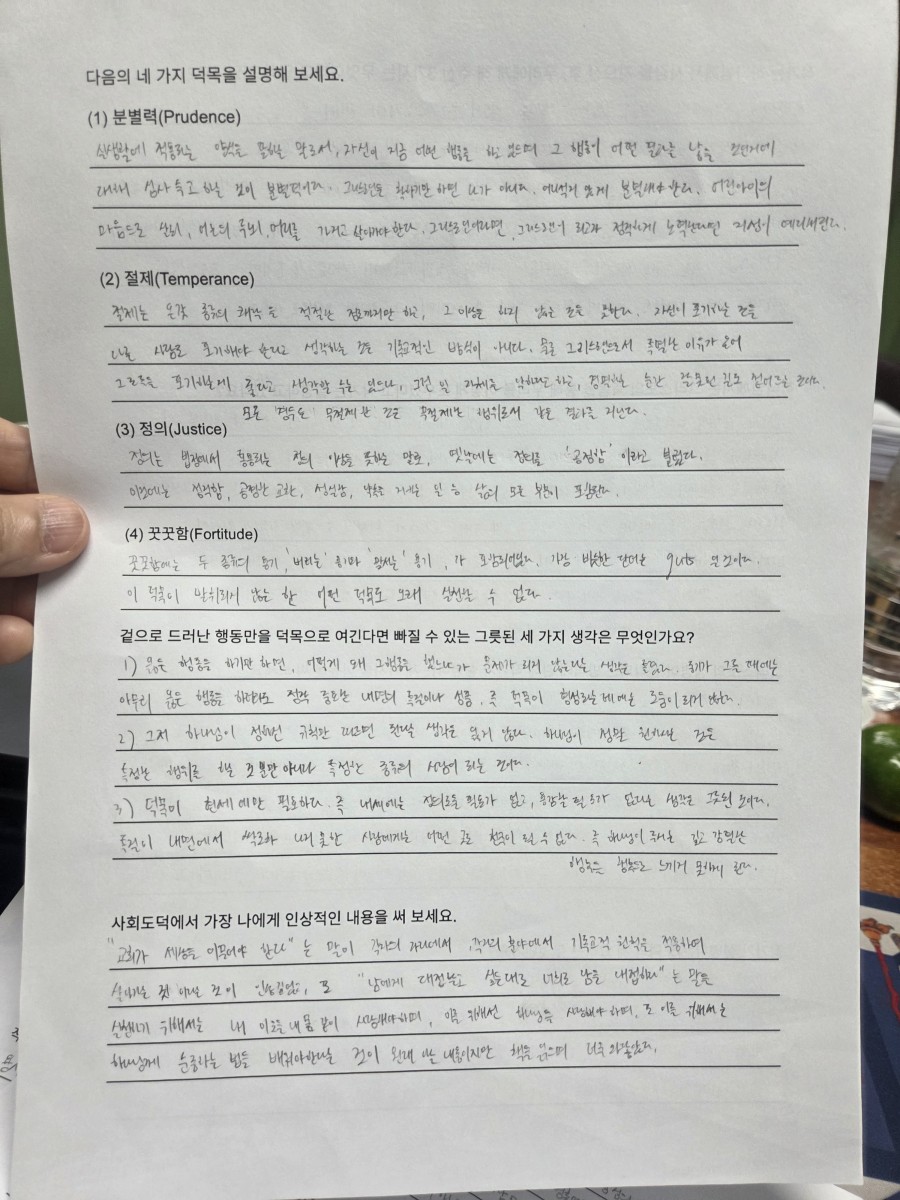 다음의 네 가지 덕목을 설명해 보세요.
(1) 분별력(Prudence)
실생활에 적용되는 양식을 말로서, 자신이 지금 어떤 행동을 하고 있으며 그 행동이 어떤 결과를 낳을 것인가에
대해 심사숙고 하는 것이 분별력이다. 그리스도인은 착하기만 하면 되는 아니다. 분별해야 한다. 어린아이의
마음으로 살되, 어른의 두뇌, 머리를 가지고 살아야 한다. 그리스도인이라면, 그리스도인이 되고자 정직하게 노력한다면 지성이 예리해진다.
(2) 절제(Temperance)
절제는 온갖 종류의 쾌락을 적절한 정도까지만 하고, 그 이상은 하지 않는 것을 뜻한다. 자신이 포기하는 것을
다른 사람도 포기해야 한다고 생각하는 것은 기독교적인 방식이 아니다. 물론 그리스도인으로서 특별한 이유가 있어
그것을 포기하는게 좋다고 생각할 수는 있으나, 그런 일 자체를 악하다고 하고, 경멸하는 순간 잘못된 길로 접어드는 것이다.
모든 '경우'는 무절제한 것은 무절제한 행위로서 같은 결과를 지닌다.
(3) 정의(Justice)
정의는 법정에서 통용되는 정의 이상을 뜻하는 말로, 옛날에는 정의를 '공정함' 이라고 불렀다.
이것에는 정직함, 공평한 교환, 성실함, 약속을 지키는 일 등 삶의 모든 부분이 포함된다.
(4) 꿋꿋함(Fortitude)
꿋꿋함에는 두 종류의 용기, '버티는' 용기와 '맞서는' 용기, 가 포함되어있다. 가장 비슷한 단어는 guts 일 것이다.
이 덕목이 발휘되지 않는 한 어떤 덕목도 오래 실천할 수 없다.
겉으로 드러난 행동만을 덕목으로 여긴다면 빠질 수 있는 그릇된 세 가지 생각은 무엇인가요?
1) 옳은 행동을 하기만 하면, 어떻게 왜 그 행동을 했느냐가 문제가 되지 않는다는 생각은 틀렸다. 동기가 그를 때에는
아무리 옳은 행동을 하더라도 정작 중요한 내면의 특질이나 성품, 즉 덕목이 형성되는 데에는 도움이 되지 않는다.
2) 그저 하나님이 정해진 규칙만 따르면 된다는 생각은 옳지 않다. 하나님이 정말 원하시는 것은
특정한 행위를 할 것 뿐만 아니라 특정한 종류의 사람이 되는 것이다.
3) 덕목이 현세에만 필요하다. 즉 내세에는 정의로울 필요가 없고, 용감할 필요가 없다는 생각은 잘못된 것이다.
특질이 내면에서 싹조차 나지 못한 사람에게는 어떤 곳도 천국이 될 수 없다. 즉 하나님이 주시는 깊고 강렬한
행복을 행복으로 느끼지 못하게 된다.
사회도덕에서 가장 나에게 인상적인 내용을 써 보세요.
"교회가 세상을 이끌어야 한다" 는 말이 각자의 자리에서, 각각의 분야에서 기독교적 원칙을 적용하여
살아가는 것 이라는 것이 인상깊었고, 또 "남에게 대접받고 싶은대로 너희도 남을 대접하라" 는 말을
실현하기 위해서는 내 이웃을 내 몸 같이 사랑해야하며, 이를 위해선 하나님을 사랑해야 하며, 또 이를 위해서는
하나님께 순종하는 법을 배워야한다는 것이 원래 아는 내용이지만 책을 읽으며 너무 와닿았다.